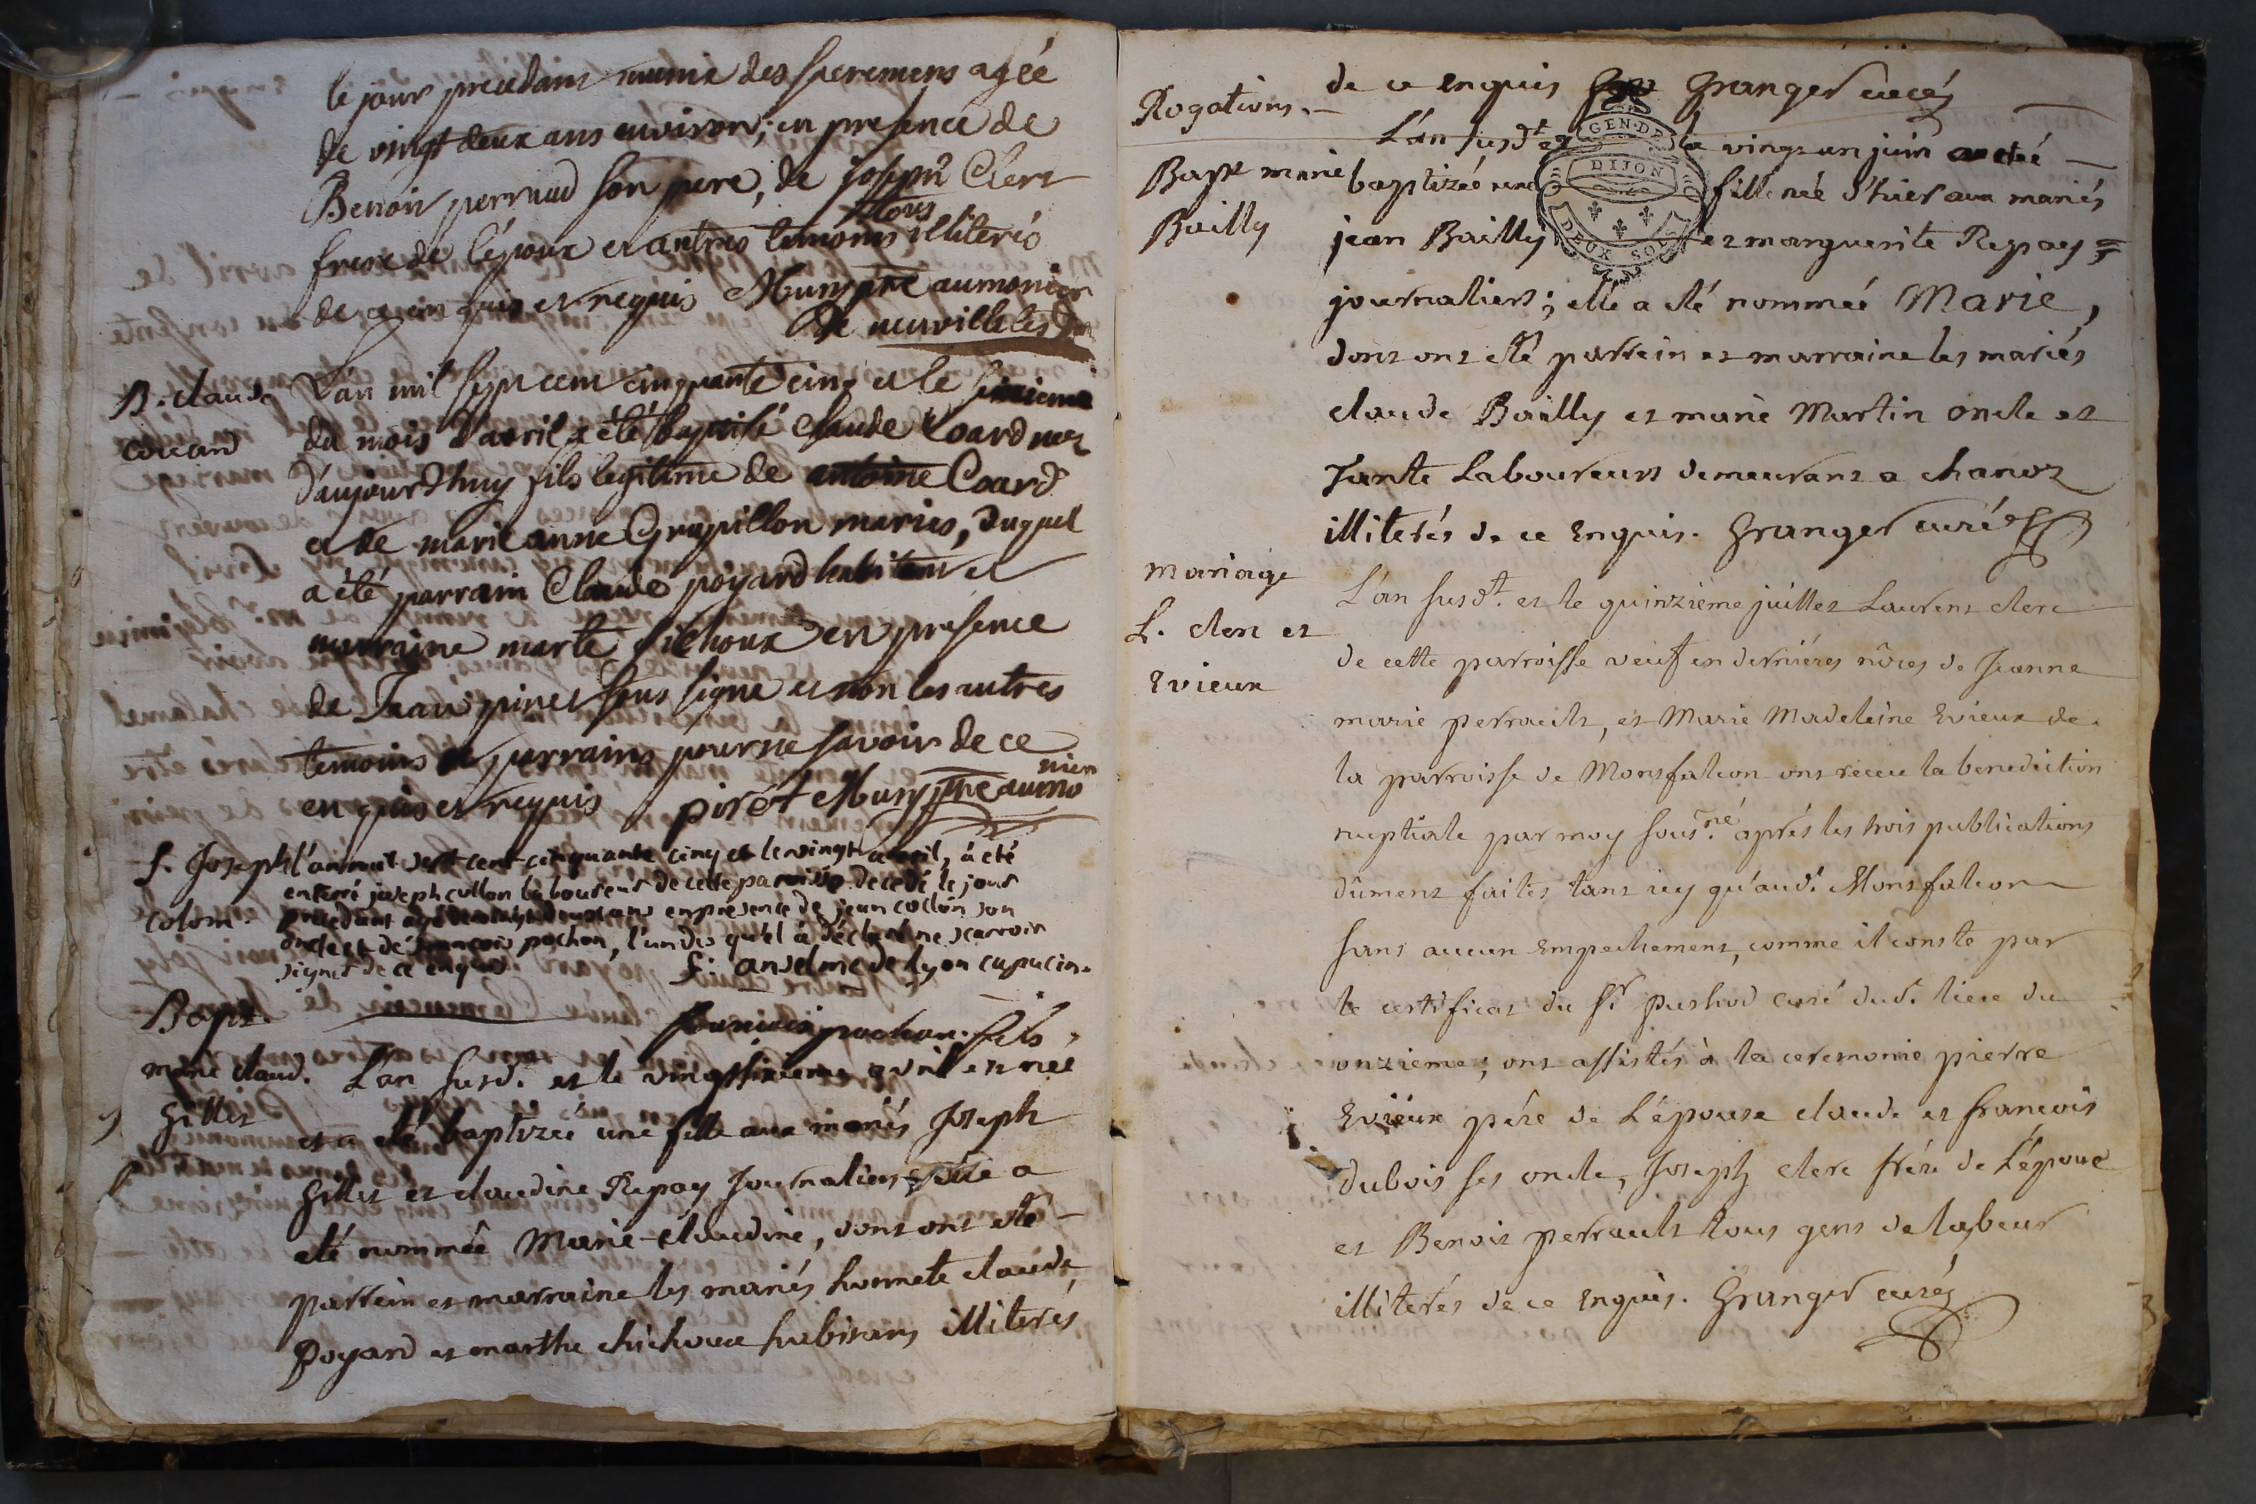 le jour precedant munie des sacremens agée
de vingt deux ans environ; en presence de
Benoir perraud son pere, de joseph Clerc
frere de l'époux et autres temoins tous illiterés
de ce en quis et requis Mury ptre aumonier
de neuville les
B. claude
coicard
L'an mil sept cent cinquante cinq et le
du mois d'avril a été baptisé Claude Coard nez
d'aujourdhuy fils legitime de antoine Coard
et de marie anne Grapillon mariés, duquel
a été parrain Claude poyard habitant et
marraine marte chichoux en presence
de Jean piret sous signe et non les autres
temoins et parrains pour ne savoir de ce
en quis et requis piret Mury ptre aumonier
f. Joseph
colom.
l'an mil sept cent cinquante cinq et le vingt avril, à eté
enterré joseph collon laboureur de cette paroisse decedé le jour
precedant agé de ans en présence de jean collon son
oncle et de françois pochon, l'un des qu'el à déclaré ne scavoir
signer de ce enquis
f. anselme de lyon capucin.
françois pochon fils
Bapt.
marie claud.
Gillet
L'an susd. et le vingt sixieme avril est née
et a eté baptizée une fille aux mariés Joseph
Gillet et claudine Repay Journaliers; elle a
eté nommée Marie-claudine, dont ont eté
parrein et marraine les mariés honnete claude
Poyard et marthe chichoux habitans illiterés
de ce enquis Granger curé
Rogations.
Bapt marie
Bailly
L'an susdt et le vingt un juin a eté
baptizée une fille née d'hier aux mariés
jean Bailly et marguerite Repay
GEN. DE
DIJON
DEUX SOLS
journaliers; elle a eté nommée Marie,
dont ont eté parrein et marraine les mariés
claude Bailly et marie Martin oncle et
Tante Laboureurs demeurans a chanoz
illiterés de ce Enquis. Granger curé
mariage
L. clerc et
Evieux
L'an susdt. et le quinzieme juillet Laurent clerc
de cette parroisse veuf en dernières nôces de Jeanne
marie perrault, et Marie Madeleine Evieux de
la parroisse de Monsfalcon ont receu la benediction
nuptiale par moy sousné. après les trois publications
dûment faites tant icy qu'aud. Monsfalcon
sans aucun Empechement, comme il conste par
le certificat du Sr pushod curé dud. lieu du
onzieme; ont assistés à la ceremonie pierre
Evieux père de L'épouse claude et françois
dubois ses oncle, Joseph clerc frére de L'époux
et Benoit perrault tous gens de labeur
illiterés de ce Enquis. Granger curé